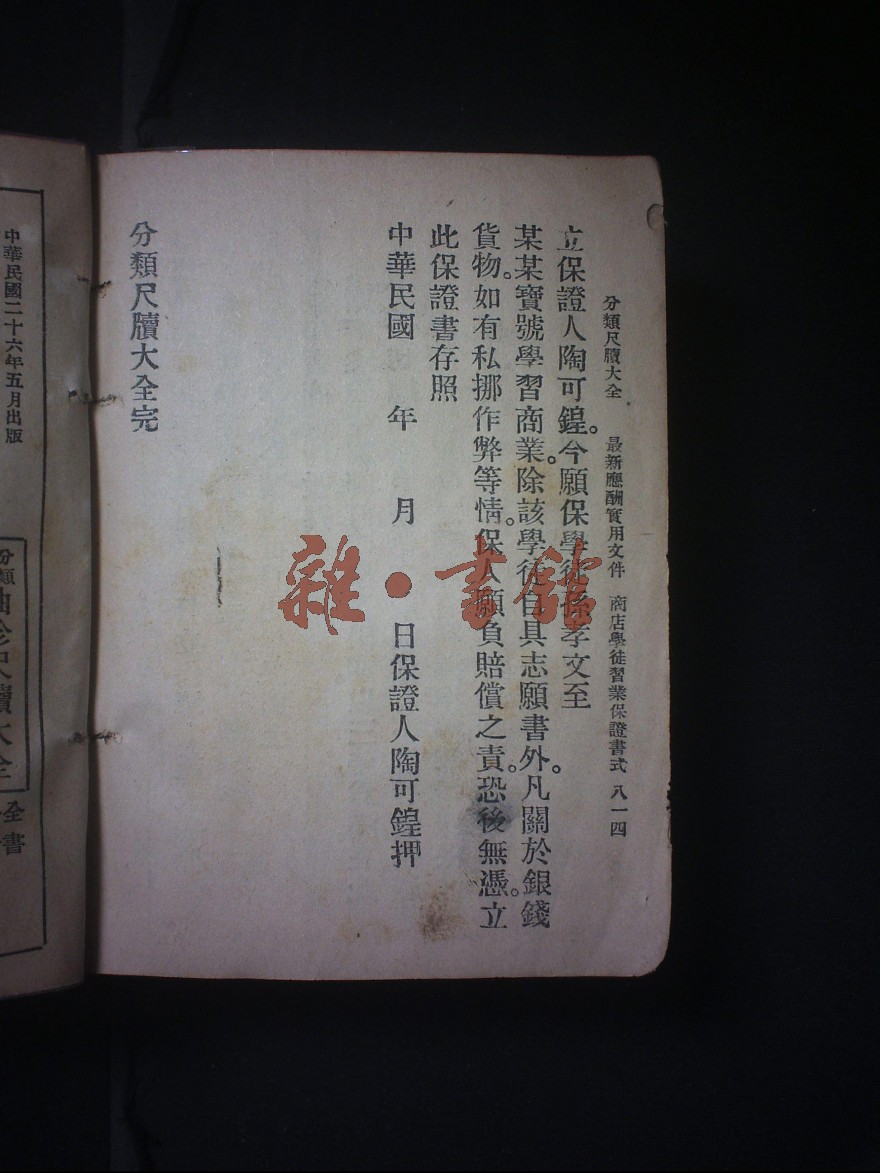 分類尺牘大全 最新應酬實用文件 商店學徒習業保證書式 八一四
立保證人陶可鍠。今願保學徒孫孝文至
某某寶號學習商業。除該學徒自具志願書外。凡關於銀錢
貨物。如有私挪作弊等情。保人願負賠償之責。恐後無憑。立
此保證書存照
中華民國 年 月 日保證人陶可鍠押
分類尺牘大全完
雜·書館
中華民國二十六年五月出版
分類
尺牘大全
全書